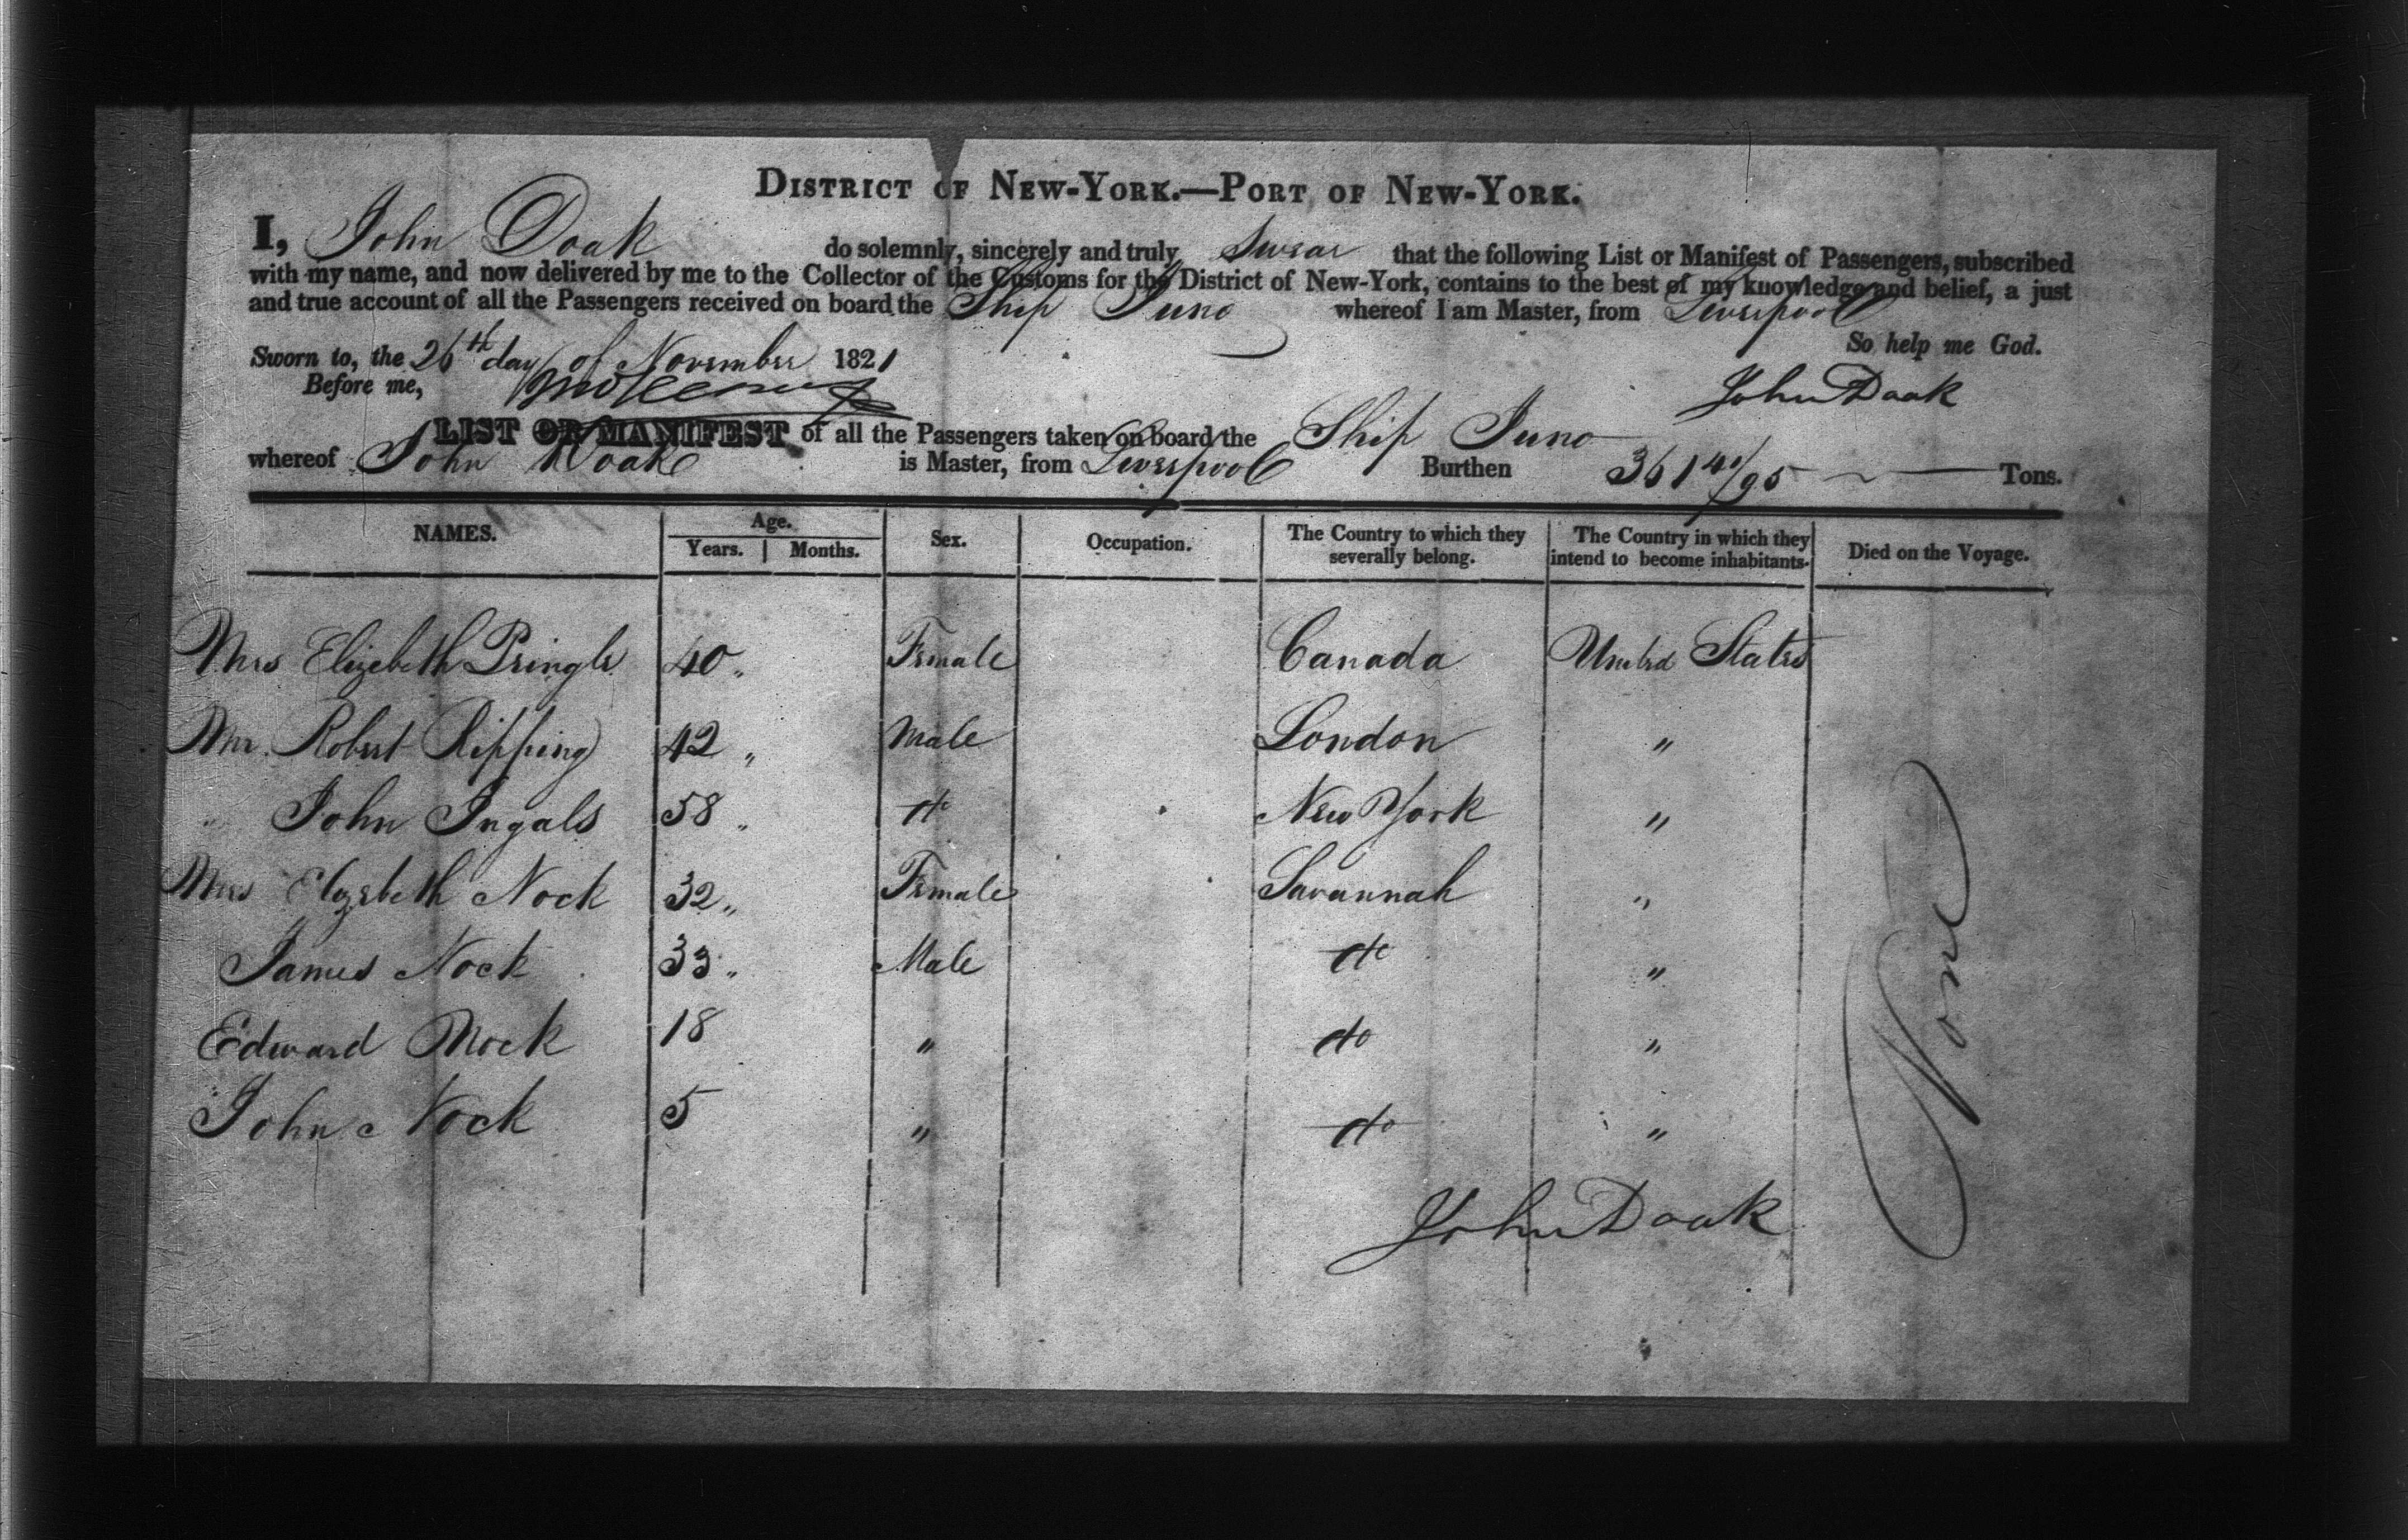 DISTRICT OF NEW-YORK.—PORT OF NEW-YORK.
I, John Doak do solemnly, sincerely and truly Swear that the following List or Manifest of Passengers, subscribed
with my name, and now delivered by me to the Collector of the Customs for the District of New-York, contains to the best of my knowledge and belief, a just
and true account of all the Passengers received on board the Ship Juno whereof I am Master, from Liverpool
So help me God.
Sworn to, the 26th day of November 1821
Before me, John Doak
LIST OR MANIFEST of all the Passengers taken on board the Ship Juno
whereof John Doak is Master, from Liverpool Burthen 361 41/95 Tons.
NAMES. Age. Years. Months. Sex. Occupation. The Country to which they severally belong. The Country in which they intend to become inhabitants. Died on the Voyage.
Mrs Elizebeth Pringle 40 " Female Canada United States
Mr. Robert Ripping 42 " Male London "
" John Ingals 58 " do New York "
Mrs Elizebeth Nock 32 " Female Savannah "
James Nock 33 " Male do "
Edward Nock 18 " do "
John Nock 5 " do "
None
John Doak